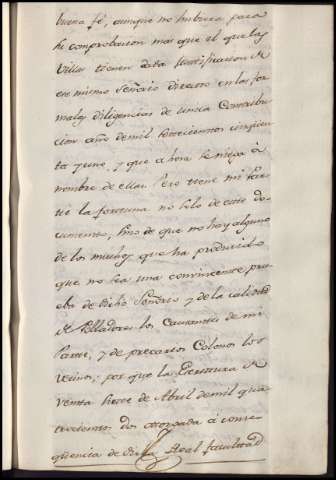 buena fé, aunque no hubiera para
su comprobacion mas que el que las
Villas tienen dada justificacion de
ese mismo Señorio directo en las for
males diligencias de unica Contribu
cion año de mil setecientos cinquen
ta y uno, y que ahora se niega à
nombre de ellas. Pero tiene mi Par
te la fortuna no solo de este do
cumento, sino de que no hay alguno
de los muchos que ha producido
que no sea una convincente prue
eba de dicho Señorio y de la calidad
de Pobladores los Causantes de mi
Parte, y de precarios Colonos los
vecinos; por que la Escritura de
Venta trece de Abril de mil qua
trocientos dos otorgada à conse
quencia de dicha Real facultad